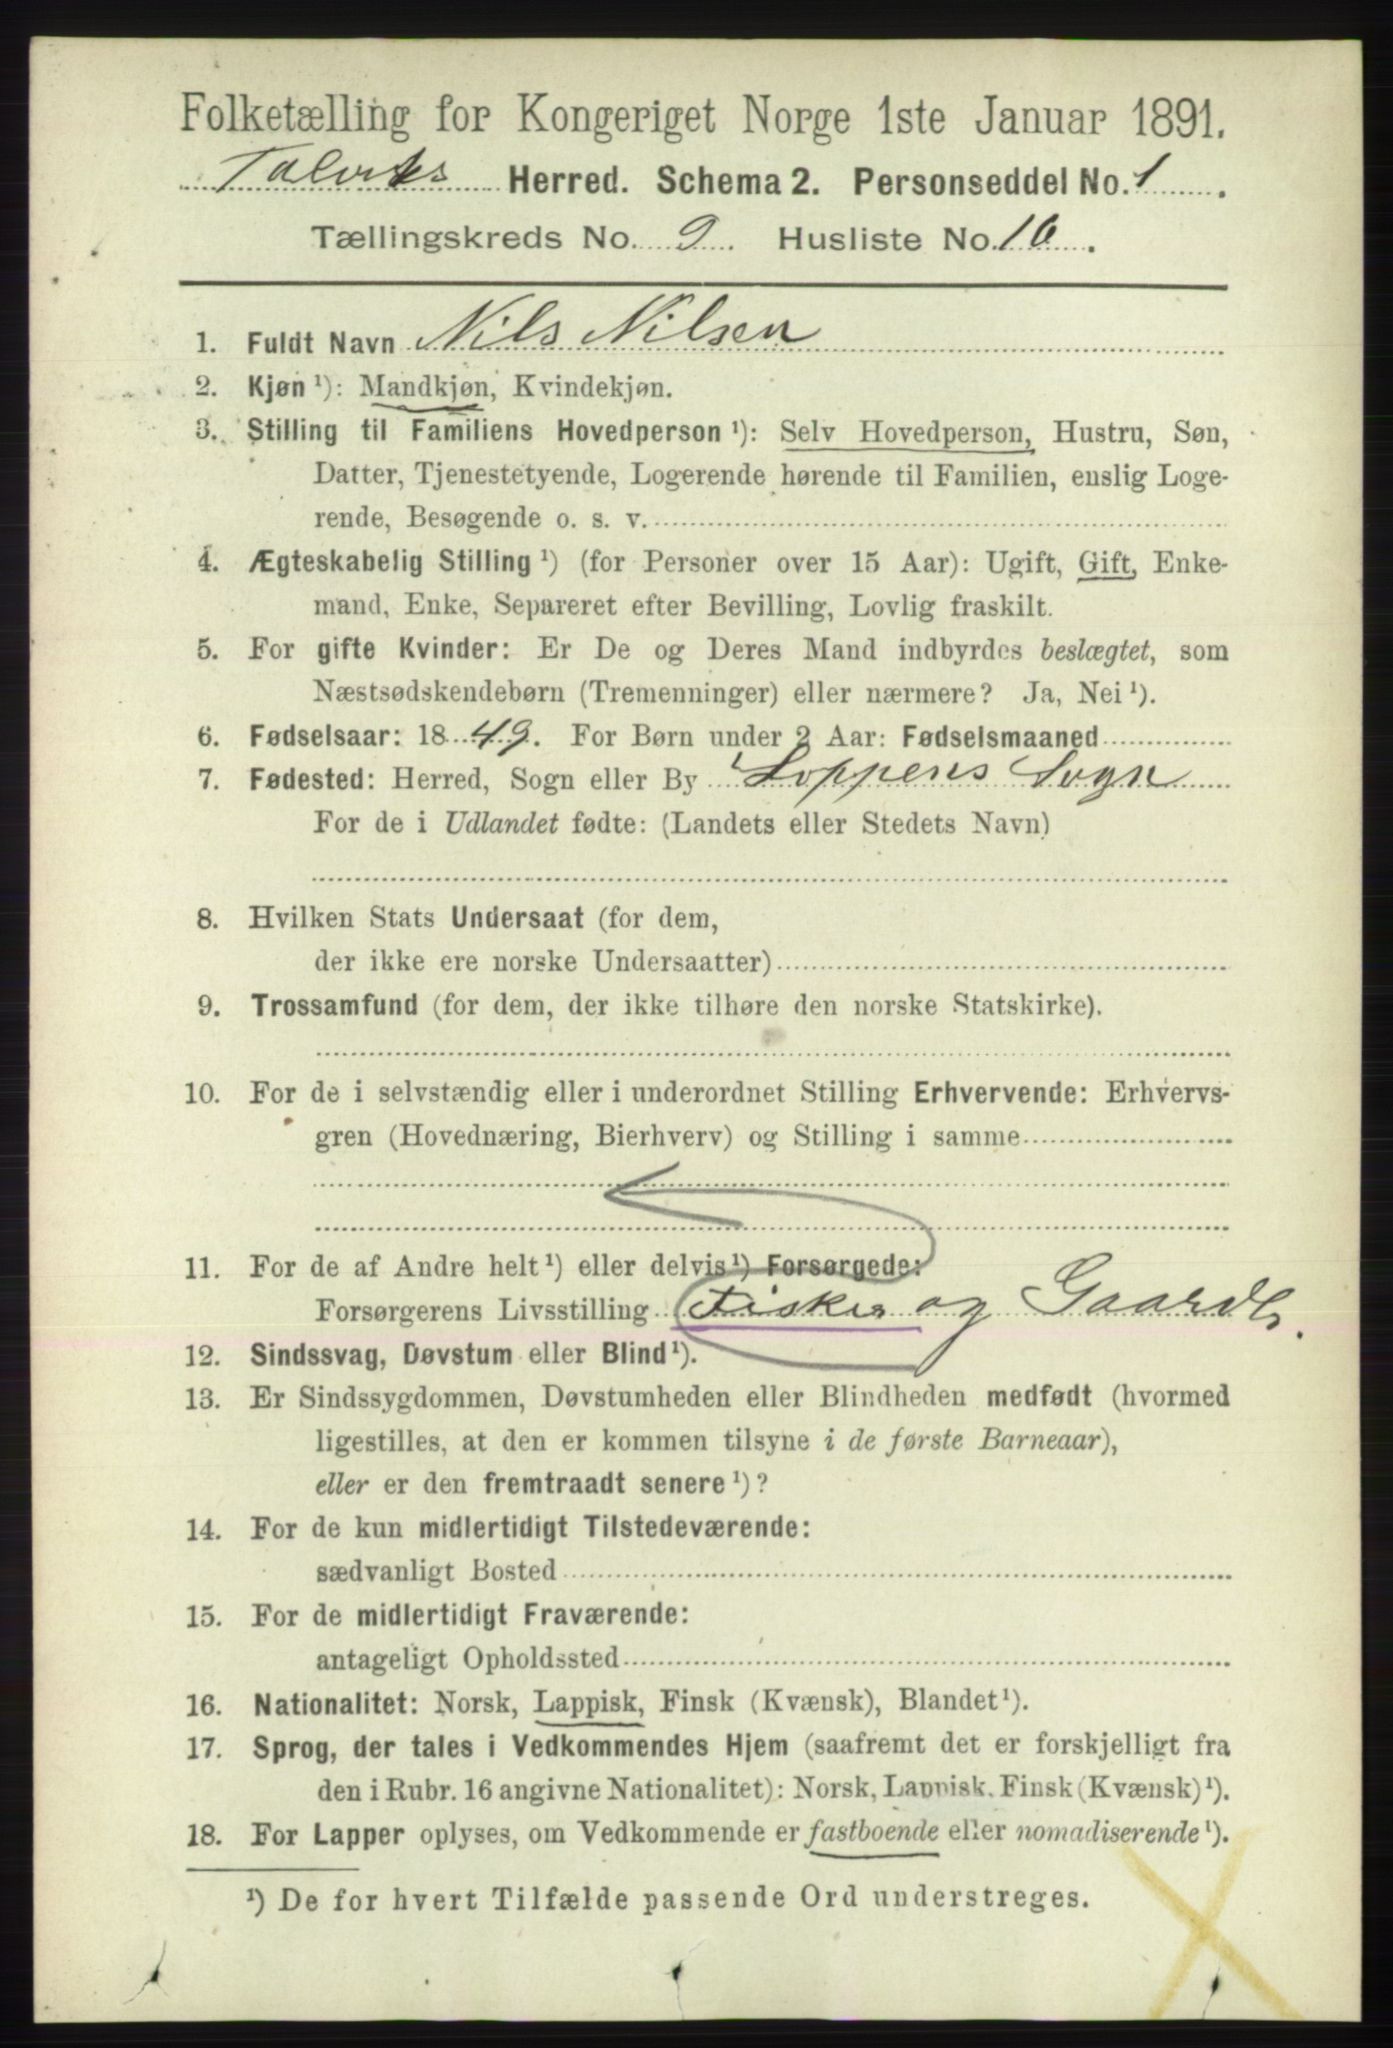 Folketælling for Kongeriget Norge 1ste Januar 1891.
Talviks Herred. Schema 2. Personseddel No. 1.
Tællingskreds No. 9. Husliste No. 16.
1. Fuldt Navn Nils Nilsen
2. Kjøn ¹): Mandkjøn, Kvindekjøn.
3. Stilling til Familiens Hovedperson ¹): Selv Hovedperson, Hustru, Søn,
Datter, Tjenestetyende, Logerende hørende til Familien, enslig Loge-
rende, Besøgende o. s. v.
4. Ægteskabelig Stilling ¹) (for Personer over 15 Aar): Ugift, Gift, Enke-
mand, Enke, Separeret efter Bevilling, Lovlig fraskilt.
5. For gifte Kvinder: Er De og Deres Mand indbyrdes beslægtet, som
Næstsødskendebørn (Tremenninger) eller nærmere? Ja, Nei ¹).
6. Fødselsaar: 1849. For Børn under 2 Aar: Fødselsmaaned
7. Fødested: Herred, Sogn eller By Loppens Sogn
For de i Udlandet fødte: (Landets eller Stedets Navn)
8. Hvilken Stats Undersaat (for dem,
der ikke ere norske Undersaatter)
9. Trossamfund (for dem, der ikke tilhøre den norske Statskirke).
10. For de i selvstændig eller i underordnet Stilling Erhvervende: Erhvervs-
gren (Hovednæring, Bierhverv) og Stilling i samme
11. For de af Andre helt ¹) eller delvis ¹) Forsørgede:
Forsørgerens Livsstilling Fisker og Gaardb.
12. Sindssvag, Døvstum eller Blind ¹).
13. Er Sindssygdommen, Døvstumheden eller Blindheden medfødt (hvormed
ligestilles, at den er kommen tilsyne i de første Barneaar),
eller er den fremtraadt senere ¹)?
14. For de kun midlertidigt Tilstedeværende:
sædvanligt Bosted
15. For de midlertidigt Fraværende:
antageligt Opholdssted
16. Nationalitet: Norsk, Lappisk, Finsk (Kvænsk), Blandet ¹).
17. Sprog, der tales i Vedkommendes Hjem (saafremt det er forskjelligt fra
den i Rubr. 16 angivne Nationalitet): Norsk, Lappisk, Finsk (Kvænsk) ¹).
18. For Lapper oplyses, om Vedkommende er fastboende eller nomadiserende ¹).
¹) De for hvert Tilfælde passende Ord understreges.